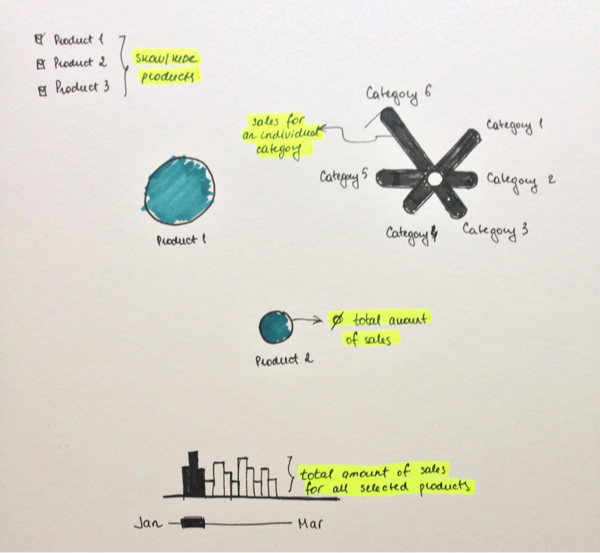 Product 1
Product 2
Product 3
show/hide
products
Category 6
sales for
an individual
category
Category 1
Category 5
Category 2
Category 4
Category 3
Product 1
Ø total amount
of sales
Product 2
total amount of sales
for all selected products
Jan
Mar